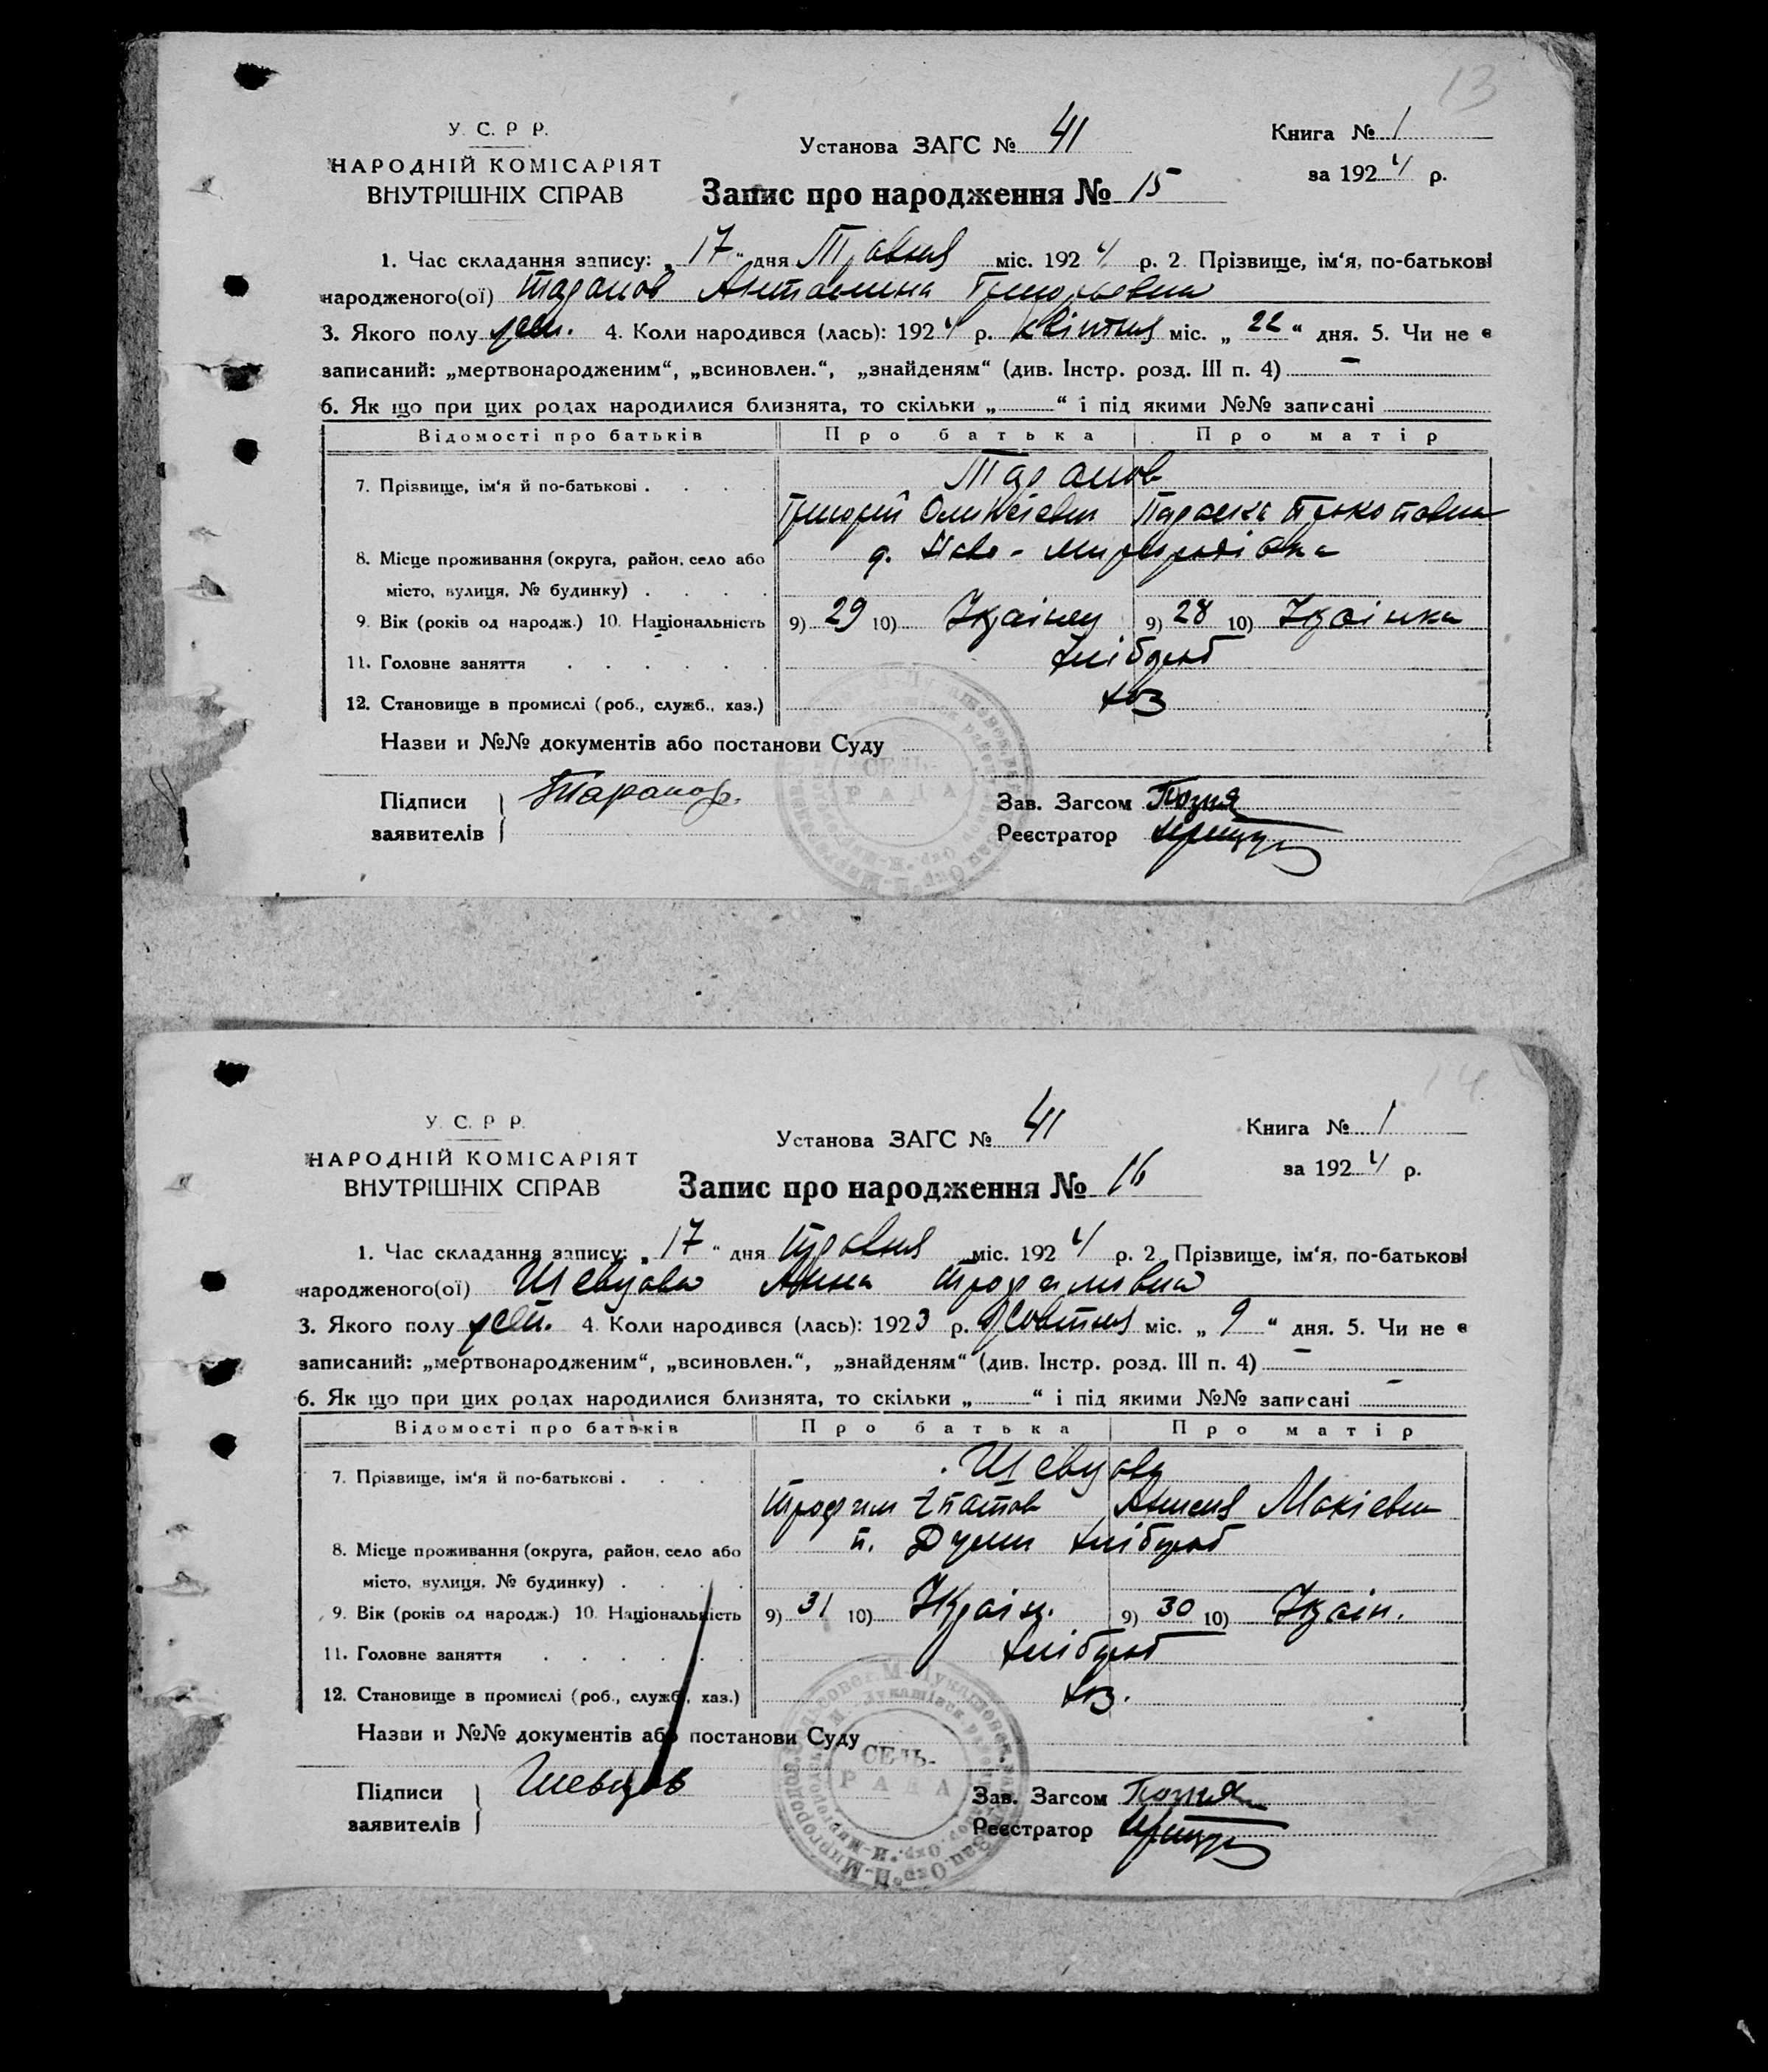 13
У. С. Р Р.
НАРОДНІЙ КОМІСАРІЯТ
ВНУТРІШНІХ СПРАВ
Установа ЗАГС № 41
Книга № 1
за 1924 р.
Запис про народження № 15
1. Час складання запису: „17“ дня Травня міс. 1924 р. 2. Прізвище, ім‘я, по-батькові
народженого(ої) Таранов Антонина Григорьевна
3. Якого полу жен. 4. Коли народився (лась): 1924 р. квітня міс. „22“ дня. 5. Чи не є
записаний: „мертвонародженим“, „всиновлен.“, „знайденям“ (див. Інстр. розд. III п. 4) —
6. Як що при цих родах народилися близнята, то скільки „ “ і під якими №№ записані
Відомості про батьків Про батька Про матір
7. Прізвище, ім‘я й по-батькові . Таранов
Григорій Параска Прокоповна
8. Місце проживання (округа, район, село або
місто, вулиця, № будинку) .
9. Вік (років од народж.) 10. Національність 9) 29 10) Україnец 9) 28 10) Українка
11. Головне заняття хлібороб
12. Становище в промислі (роб., служб., хаз.) хоз
Назви и №№ документів або постанови Суду
СЕЛЬ-
РАДА
Підписи
заявителів
Таранов
Зав. Загсом
Реєстратор
14
У. С. Р Р.
НАРОДНІЙ КОМІСАРІЯТ
ВНУТРІШНІХ СПРАВ
Установа ЗАГС № 41
Книга № 1
за 1924 р.
Запис про народження № 16
1. Час складання запису: „17“ дня травня міс. 1924 р. 2. Прізвище, ім‘я, по-батькові
народженого(ої) Шевцова Анна Трофимовна
3. Якого полу жен. 4. Коли народився (лась): 1923 р. жовтня міс. „9“ дня. 5. Чи не є
записаний: „мертвонародженим“, „всиновлен.“, „знайденям“ (див. Інстр. розд. III п. 4) —
6. Як що при цих родах народилися близнята, то скільки „ “ і під якими №№ записані —
Відомості про батьків Про батька Про матір
7. Прізвище, ім‘я й по-батькові . Шевцов
Трофим Мокіевн
8. Місце проживання (округа, район, село або хлібороб
місто, вулиця, № будинку) .
9. Вік (років од народж.) 10. Національність 9) 31 10) Україн. 9) 30 10) Україн.
11. Головне заняття хлібороб
12. Становище в промислі (роб., служб., хаз.) хоз.
Назви и №№ документів або постанови Суду
СЕЛЬ-
РАДА
Підписи
заявителів
Шевцов
Зав. Загсом
Реєстратор